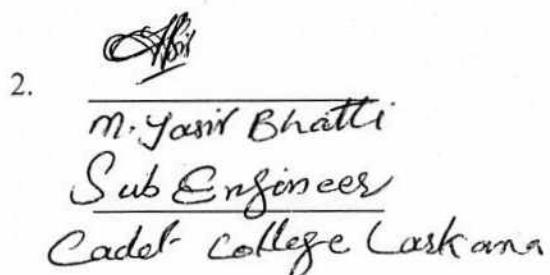 2.
M. Yasir Bhatti
Sub Engineer
Cadet College Larkana